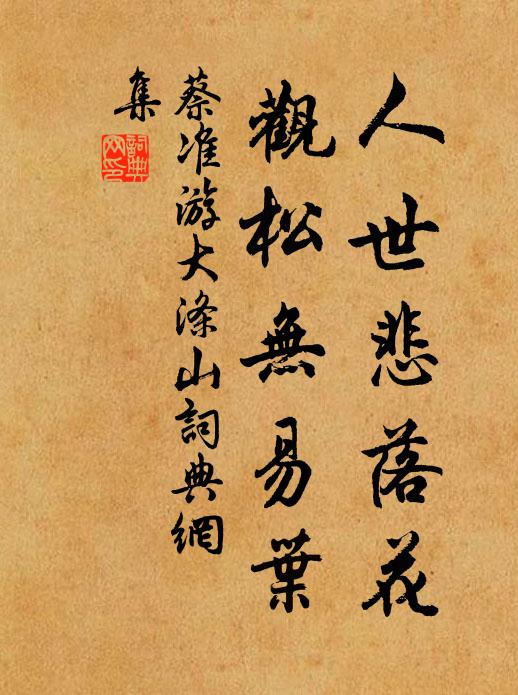 人世悲落花
觀松無易葉
蔡准游大滌山詞典網
集
詞典網印